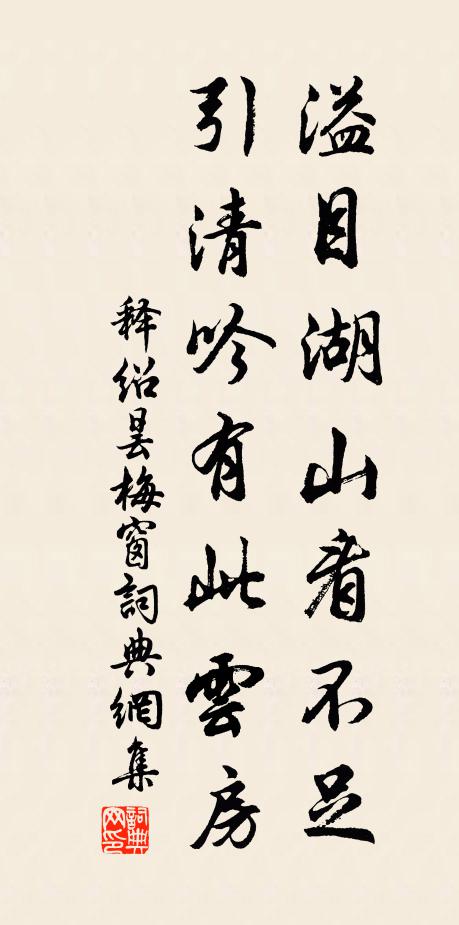 溢目湖山看不足
引清吟有此雲房
释紹曇梅窗詞典網集
詞典网印